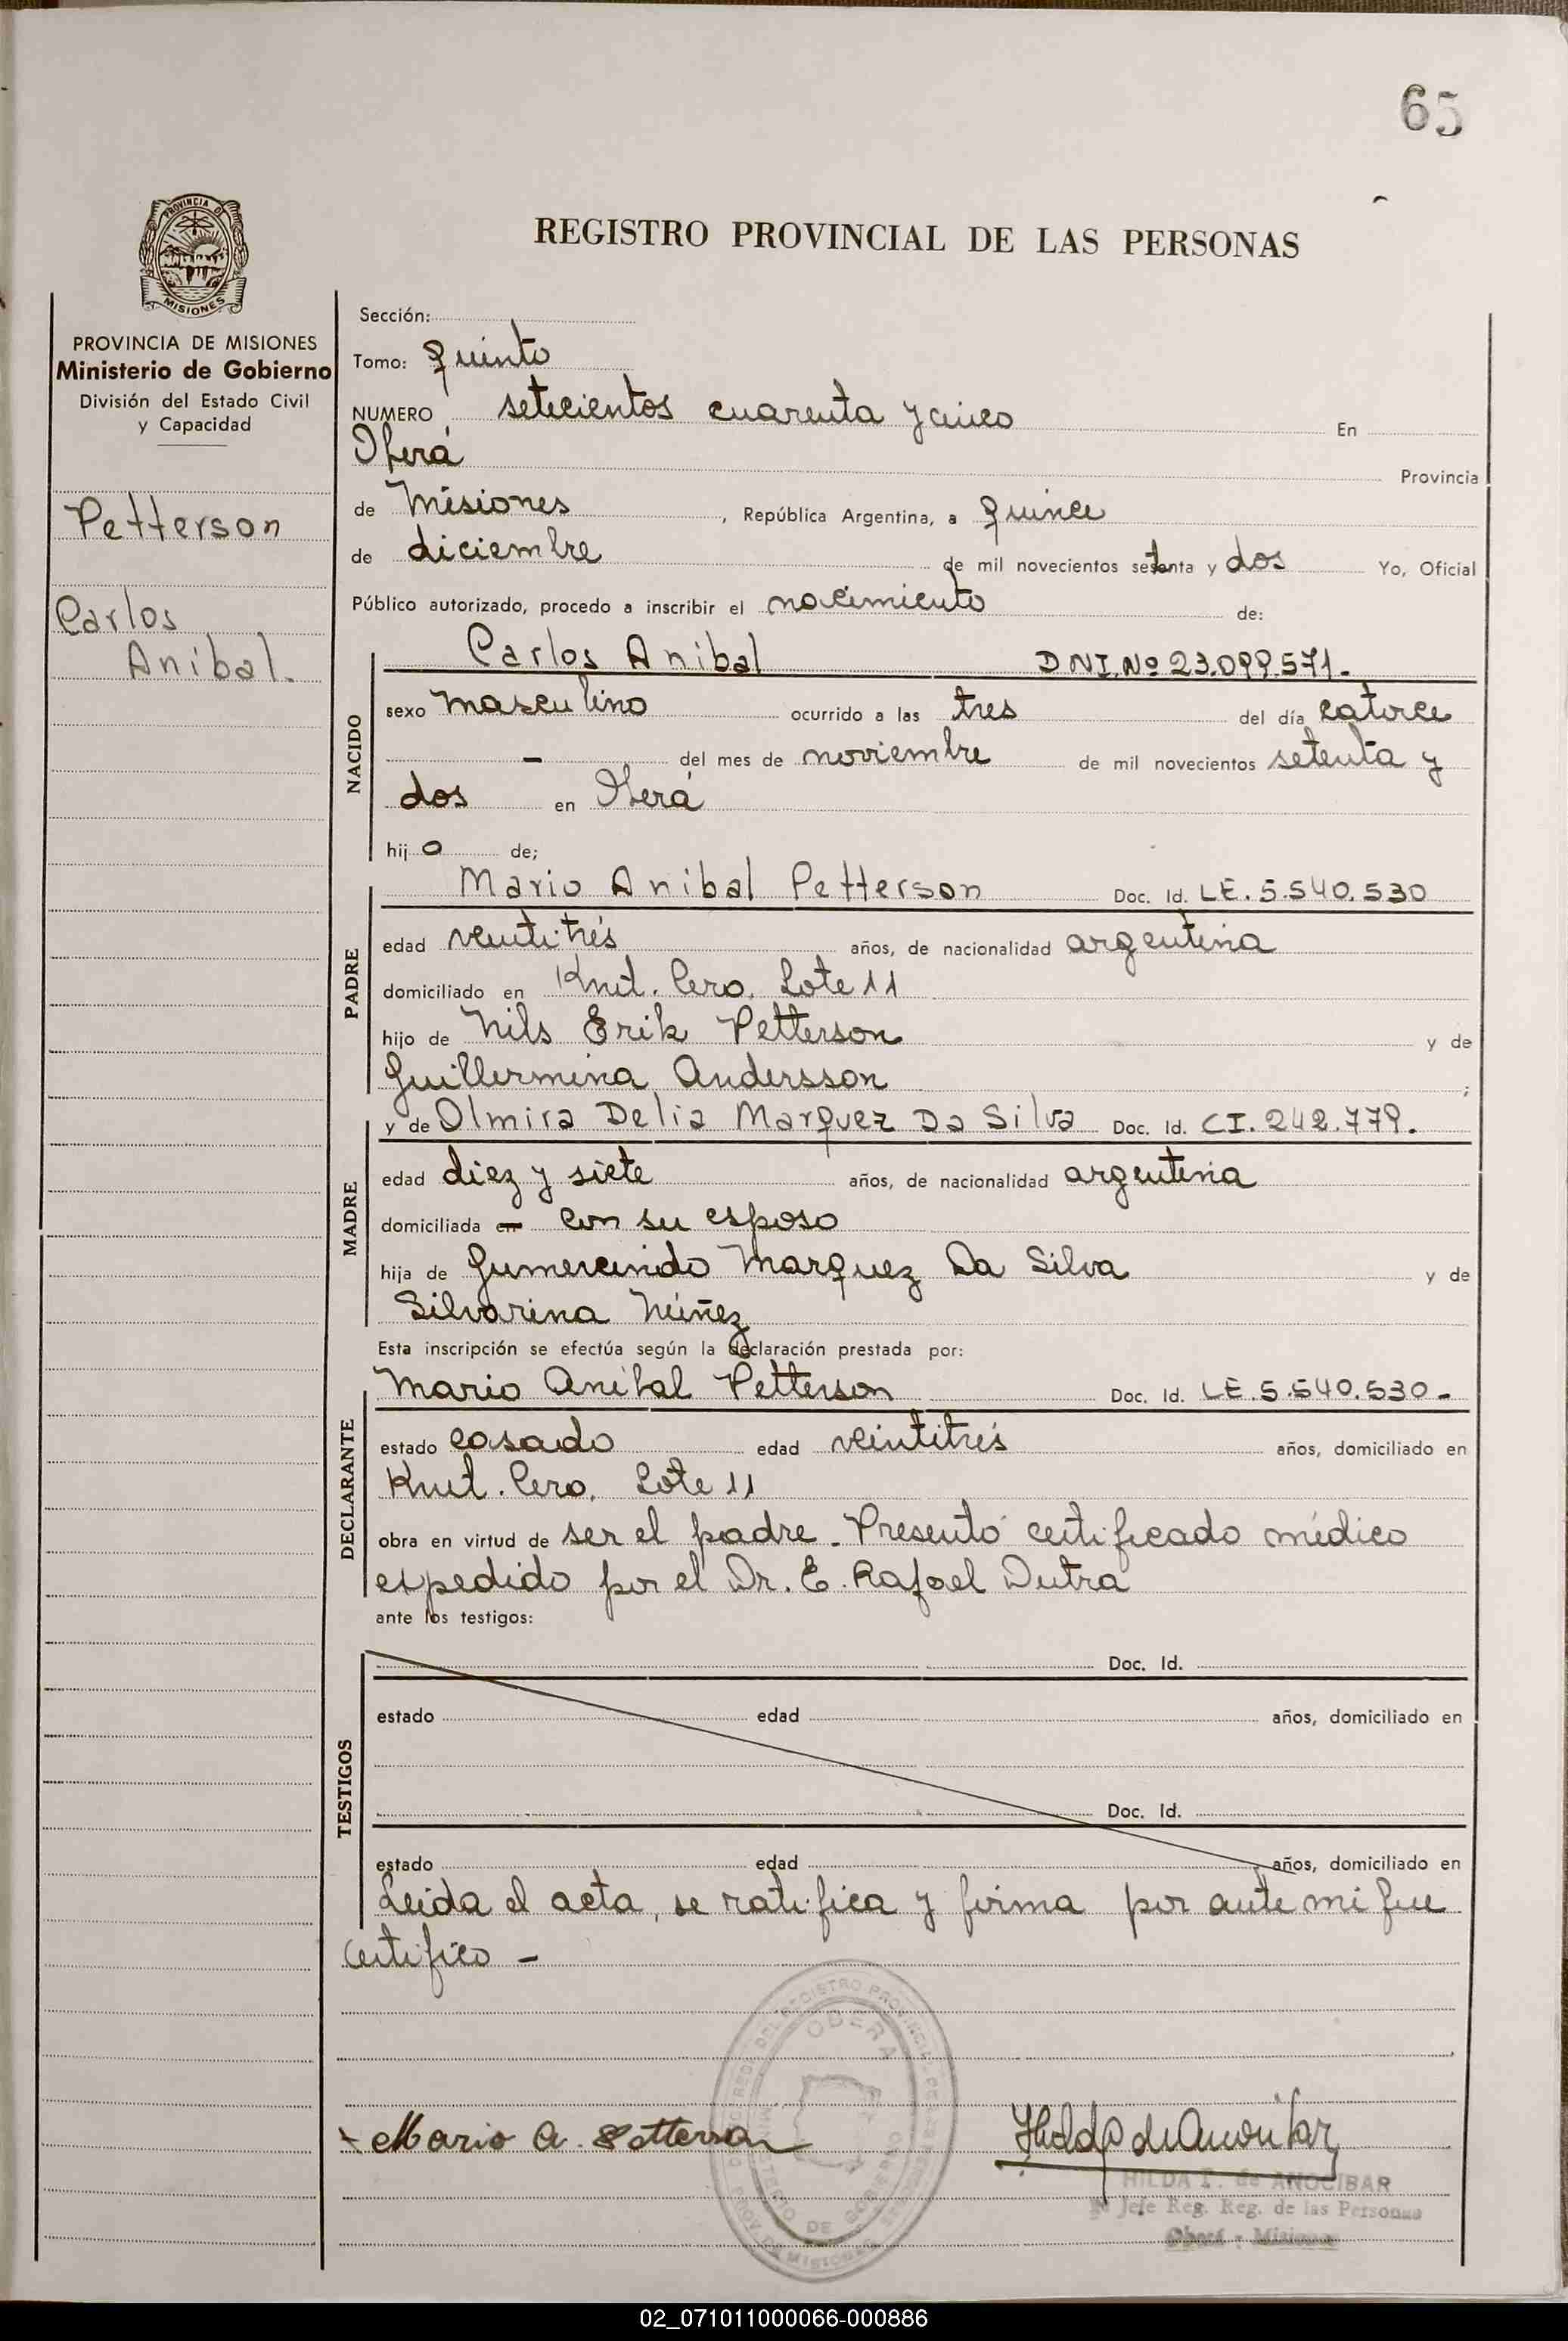 65
REGISTRO PROVINCIAL DE LAS PERSONAS
PROVINCIA DE
MISIONES
PROVINCIA DE MISIONES
Ministerio de Gobierno
División del Estado Civil
y Capacidad
Petterson
Carlos
Anibal.
Sección:
Tomo: Quinto
NUMERO setecientos cuarenta y cinco En
Oberá Provincia
de Misiones , República Argentina, a quince
de diciembre de mil novecientos setenta y dos Yo, Oficial
Público autorizado, procedo a inscribir el nacimiento de:
NACIDO
Carlos Anibal DNI.Nº 23.099.571.
sexo masculino ocurrido a las tres del día catorce
- del mes de noviembre de mil novecientos setenta y
dos en Oberá
hij o de;
PADRE
Mario Anibal Petterson Doc. Id. LE. 5.540.530
edad veintitrés años, de nacionalidad argentina
domiciliado en Lote 11
hijo de Nils Erik Petterson y de
Guillermina Andersson ;
MADRE
y de Olmira Delia Marquez Da Silva Doc. Id. CI. 242.779.
edad diez y siete años, de nacionalidad argentina
domiciliada - con su esposo
hija de Gumercindo Marquez Da Silva y de
Silvarina Núñez
Esta inscripción se efectúa según la declaración prestada por:
DECLARANTE
Mario Anibal Petterson Doc. Id. LE. 5.540.530-
estado casado edad veintitrés años, domiciliado en
Lote 11
obra en virtud de ser el padre. Presentó certificado médico
expedido por el Dr. E. Rafael Dutra
ante los testigos:
TESTIGOS
Doc. Id.
estado edad años, domiciliado en
Doc. Id.
estado edad años, domiciliado en
Leida el acta, se ratifica y firma por ante mi que
certifico -
OBERA
MINISTERIO DE GOBIERNO
Mario A. Petterson
HILDA de ANOCIBAR
Jefe Reg. Reg. de las Personas
Oberá - Misiones
02_071011000066-000886